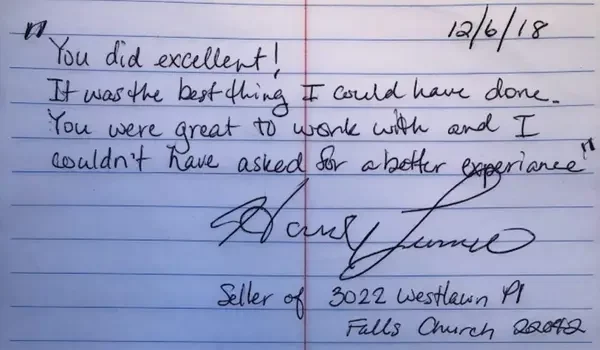 12/6/18
"You did excellent!
It was the best thing I could have done.
You were great to work with and I
couldn't have asked for a better experiance"
Seller of 3022 Westlawn Pl
Falls Church 22042